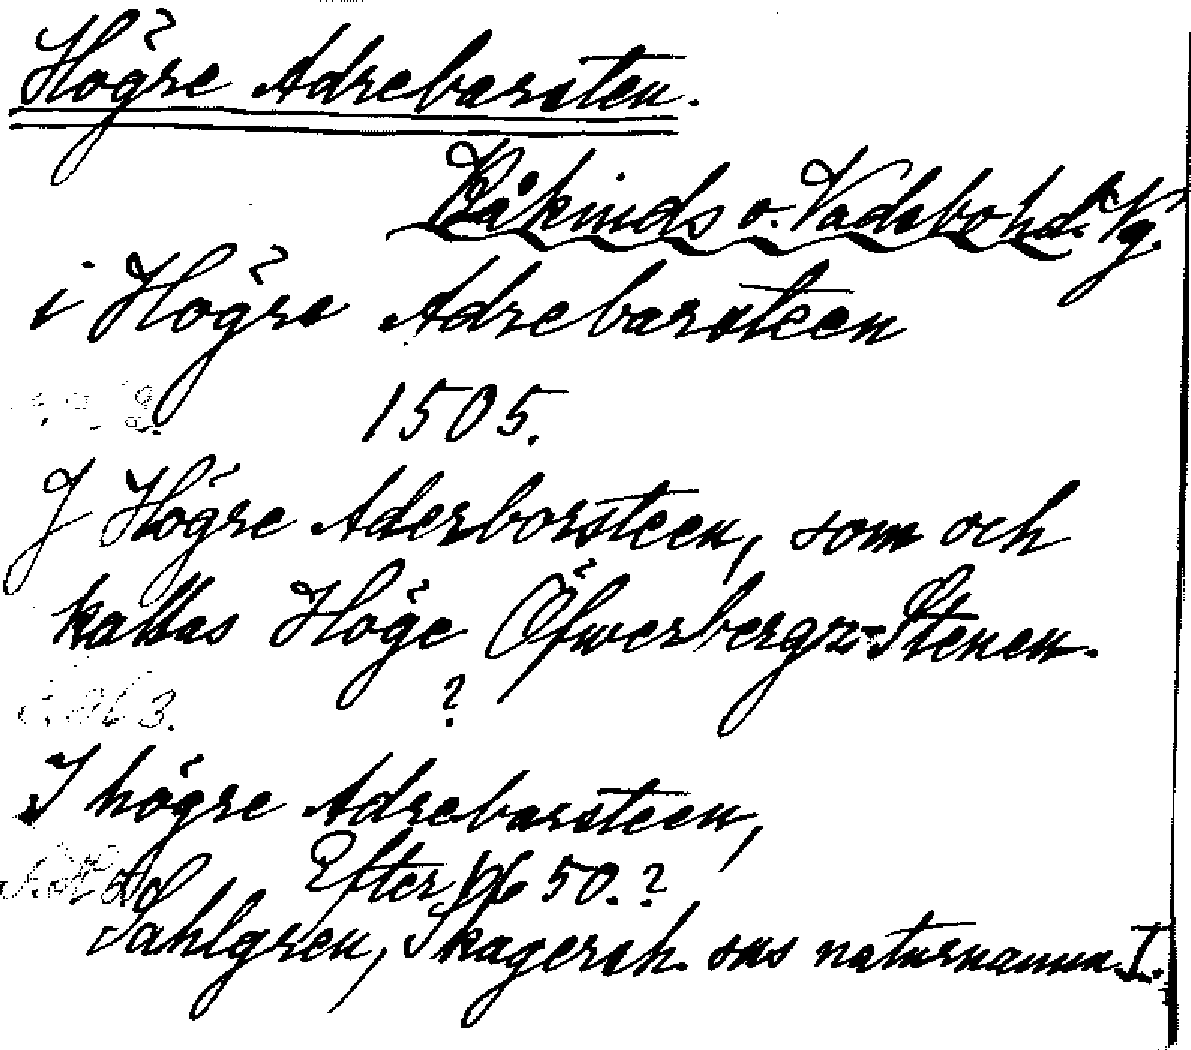 Högre Adrebarsten.
Kåkinds o. Vadsbo hd. Vg.
i Högre Adrebarsteen
1505.
J Högre Aderborsteen, som och
kallas Höge Öfwerbergz-Stenen.
?
I högre Adrebarsteen,
Efter 50.?
Sahlgren, Skagersh. sns naturnamn I.